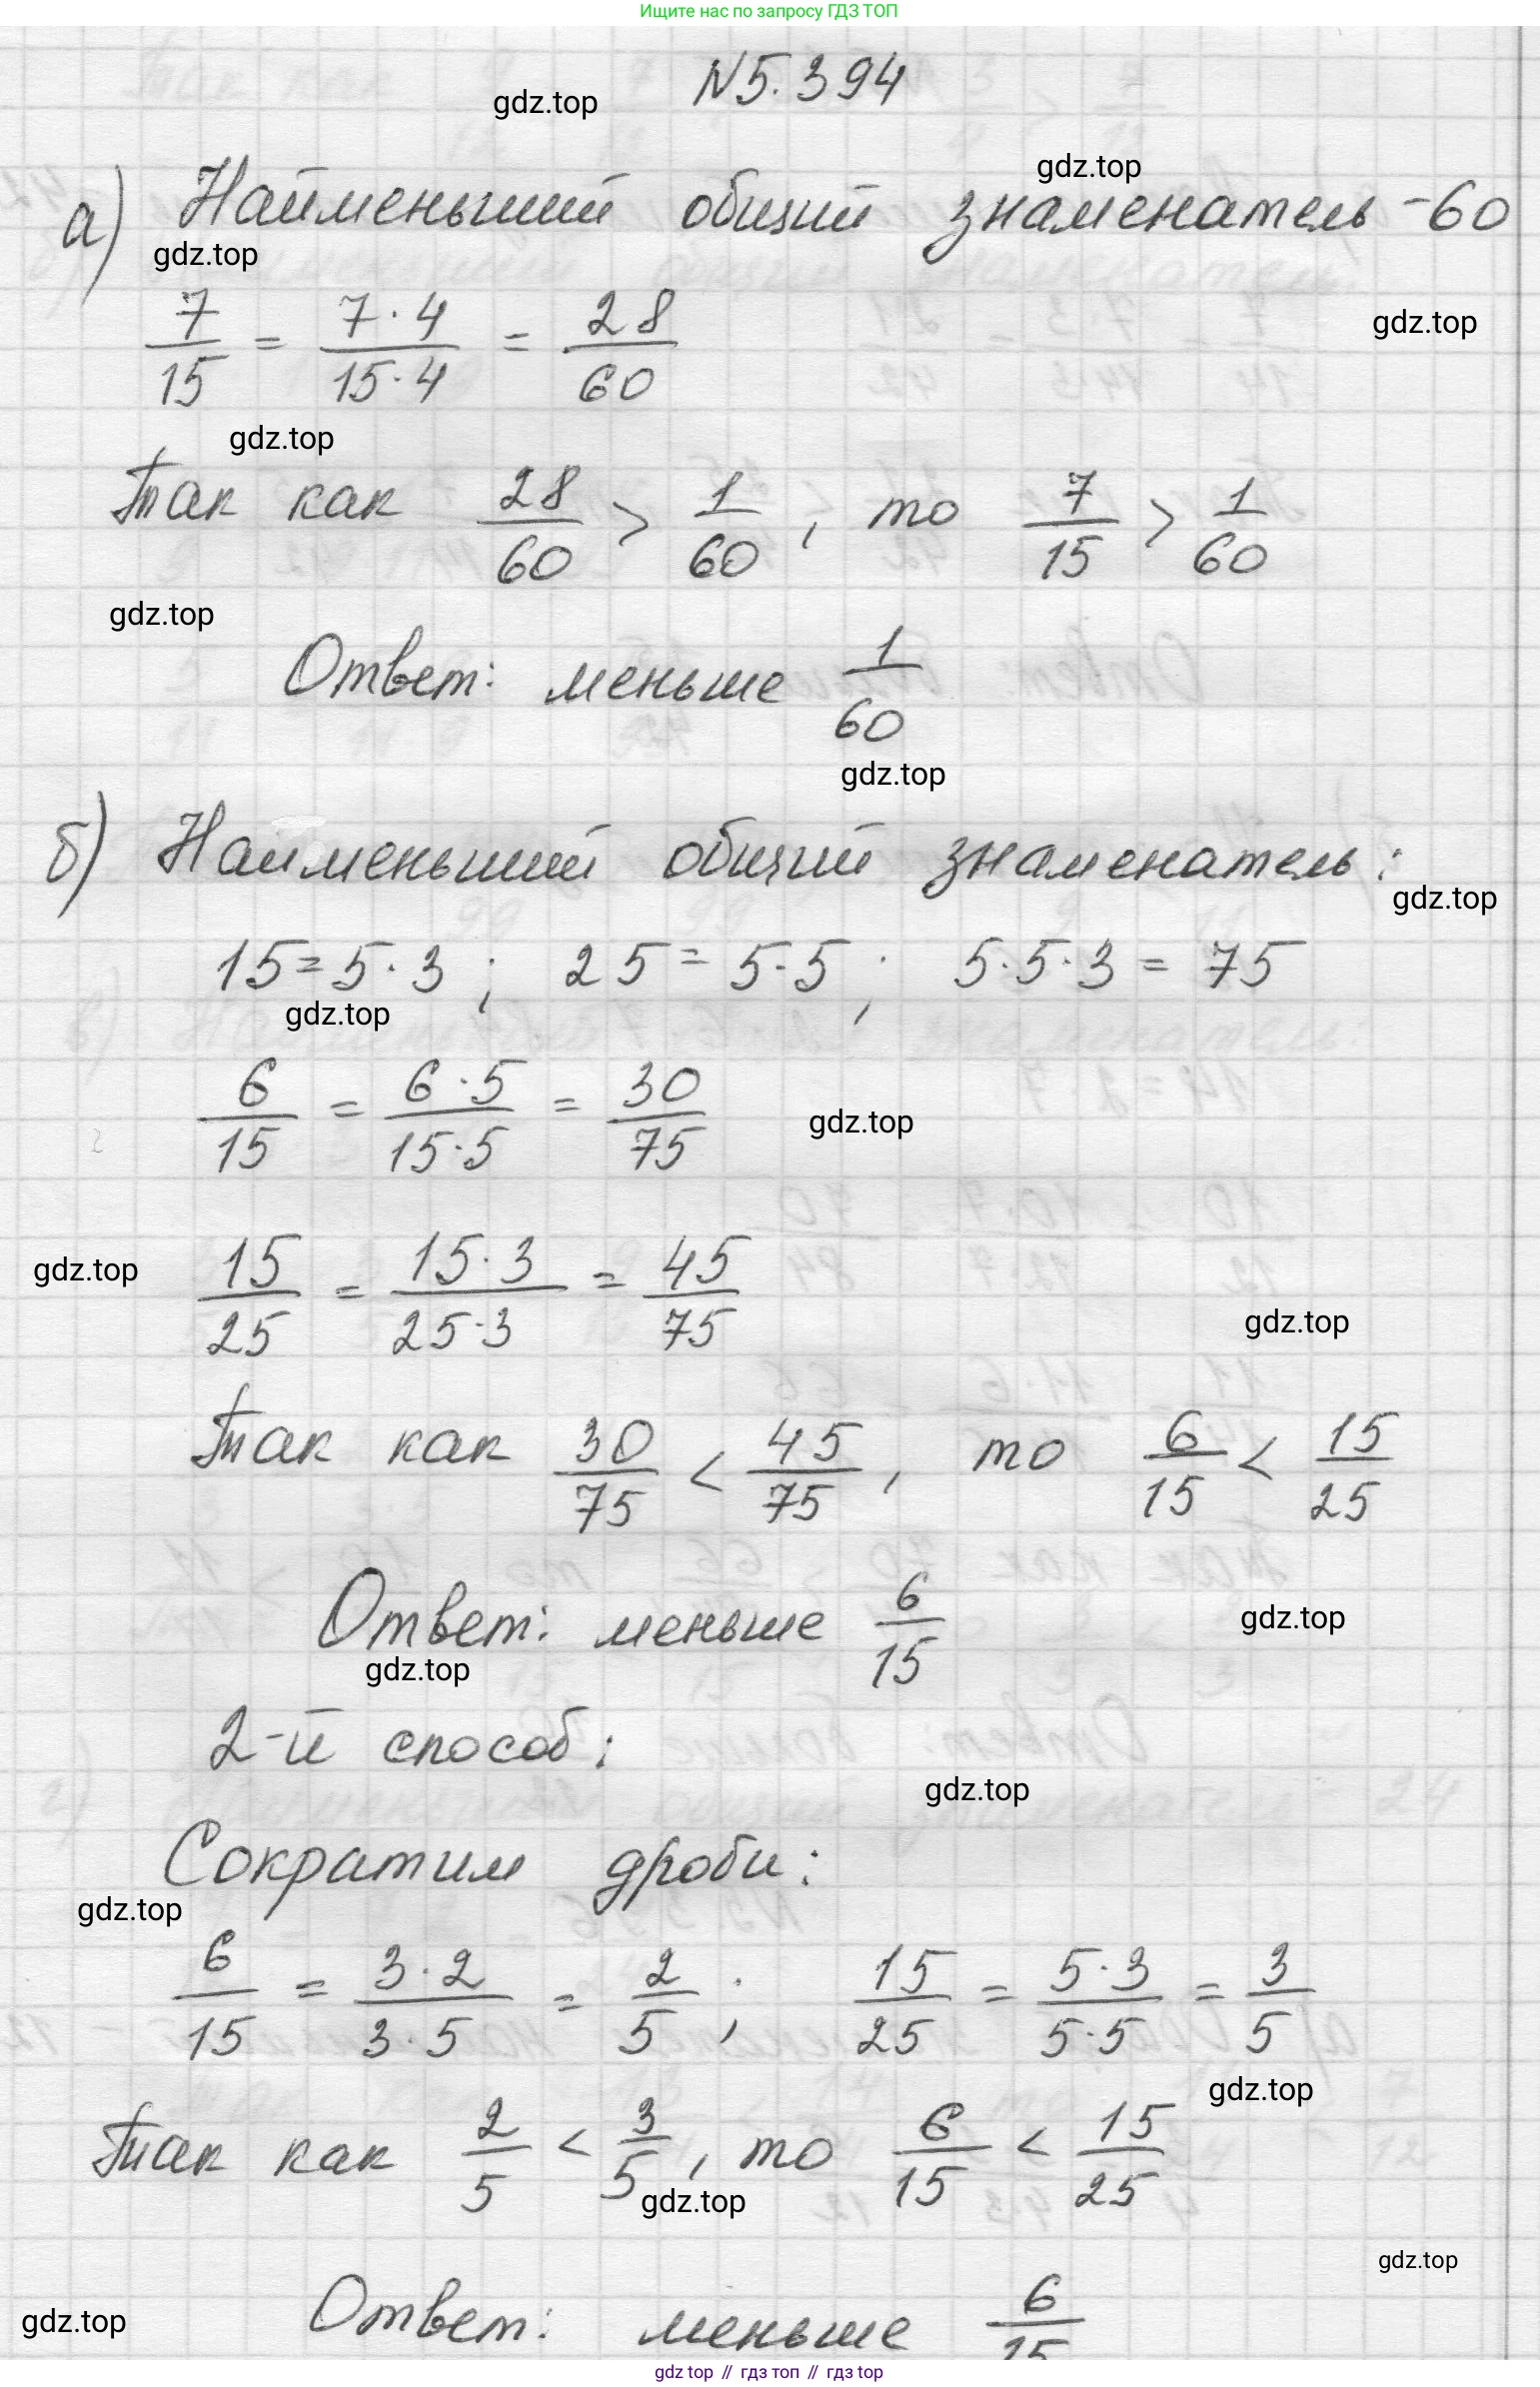 Ищите нас по запросу ГДЗ ТОП
N5.394
gdz.top
gdz.top
а) Наименьший общий знаменатель - 60
gdz.top
7/15 = 7·4/15·4 = 28/60
gdz.top
gdz.top
Так как 28/60 > 1/60, то 7/15 > 1/60
gdz.top
Ответ: меньше 1/60
gdz.top
б) Наименьший общий знаменатель:
gdz.top
15=5·3; 25=5·5; 5·5·3=75
gdz.top
6/15 = 6·5/15·5 = 30/75
gdz.top
gdz.top
15/25 = 15·3/25·3 = 45/75
gdz.top
Так как 30/75 < 45/75, то 6/15 < 15/25
Ответ: меньше 6/15
gdz.top
gdz.top
2-й способ:
gdz.top
Сократим дроби:
gdz.top
6/15 = 3·2/3·5 = 2/5; 15/25 = 5·3/5·5 = 3/5
gdz.top
Так как 2/5 < 3/5, то 6/15 < 15/25
gdz.top
gdz.top
gdz.top
Ответ: меньше 6/15
gdz top // гдз топ // gdz top